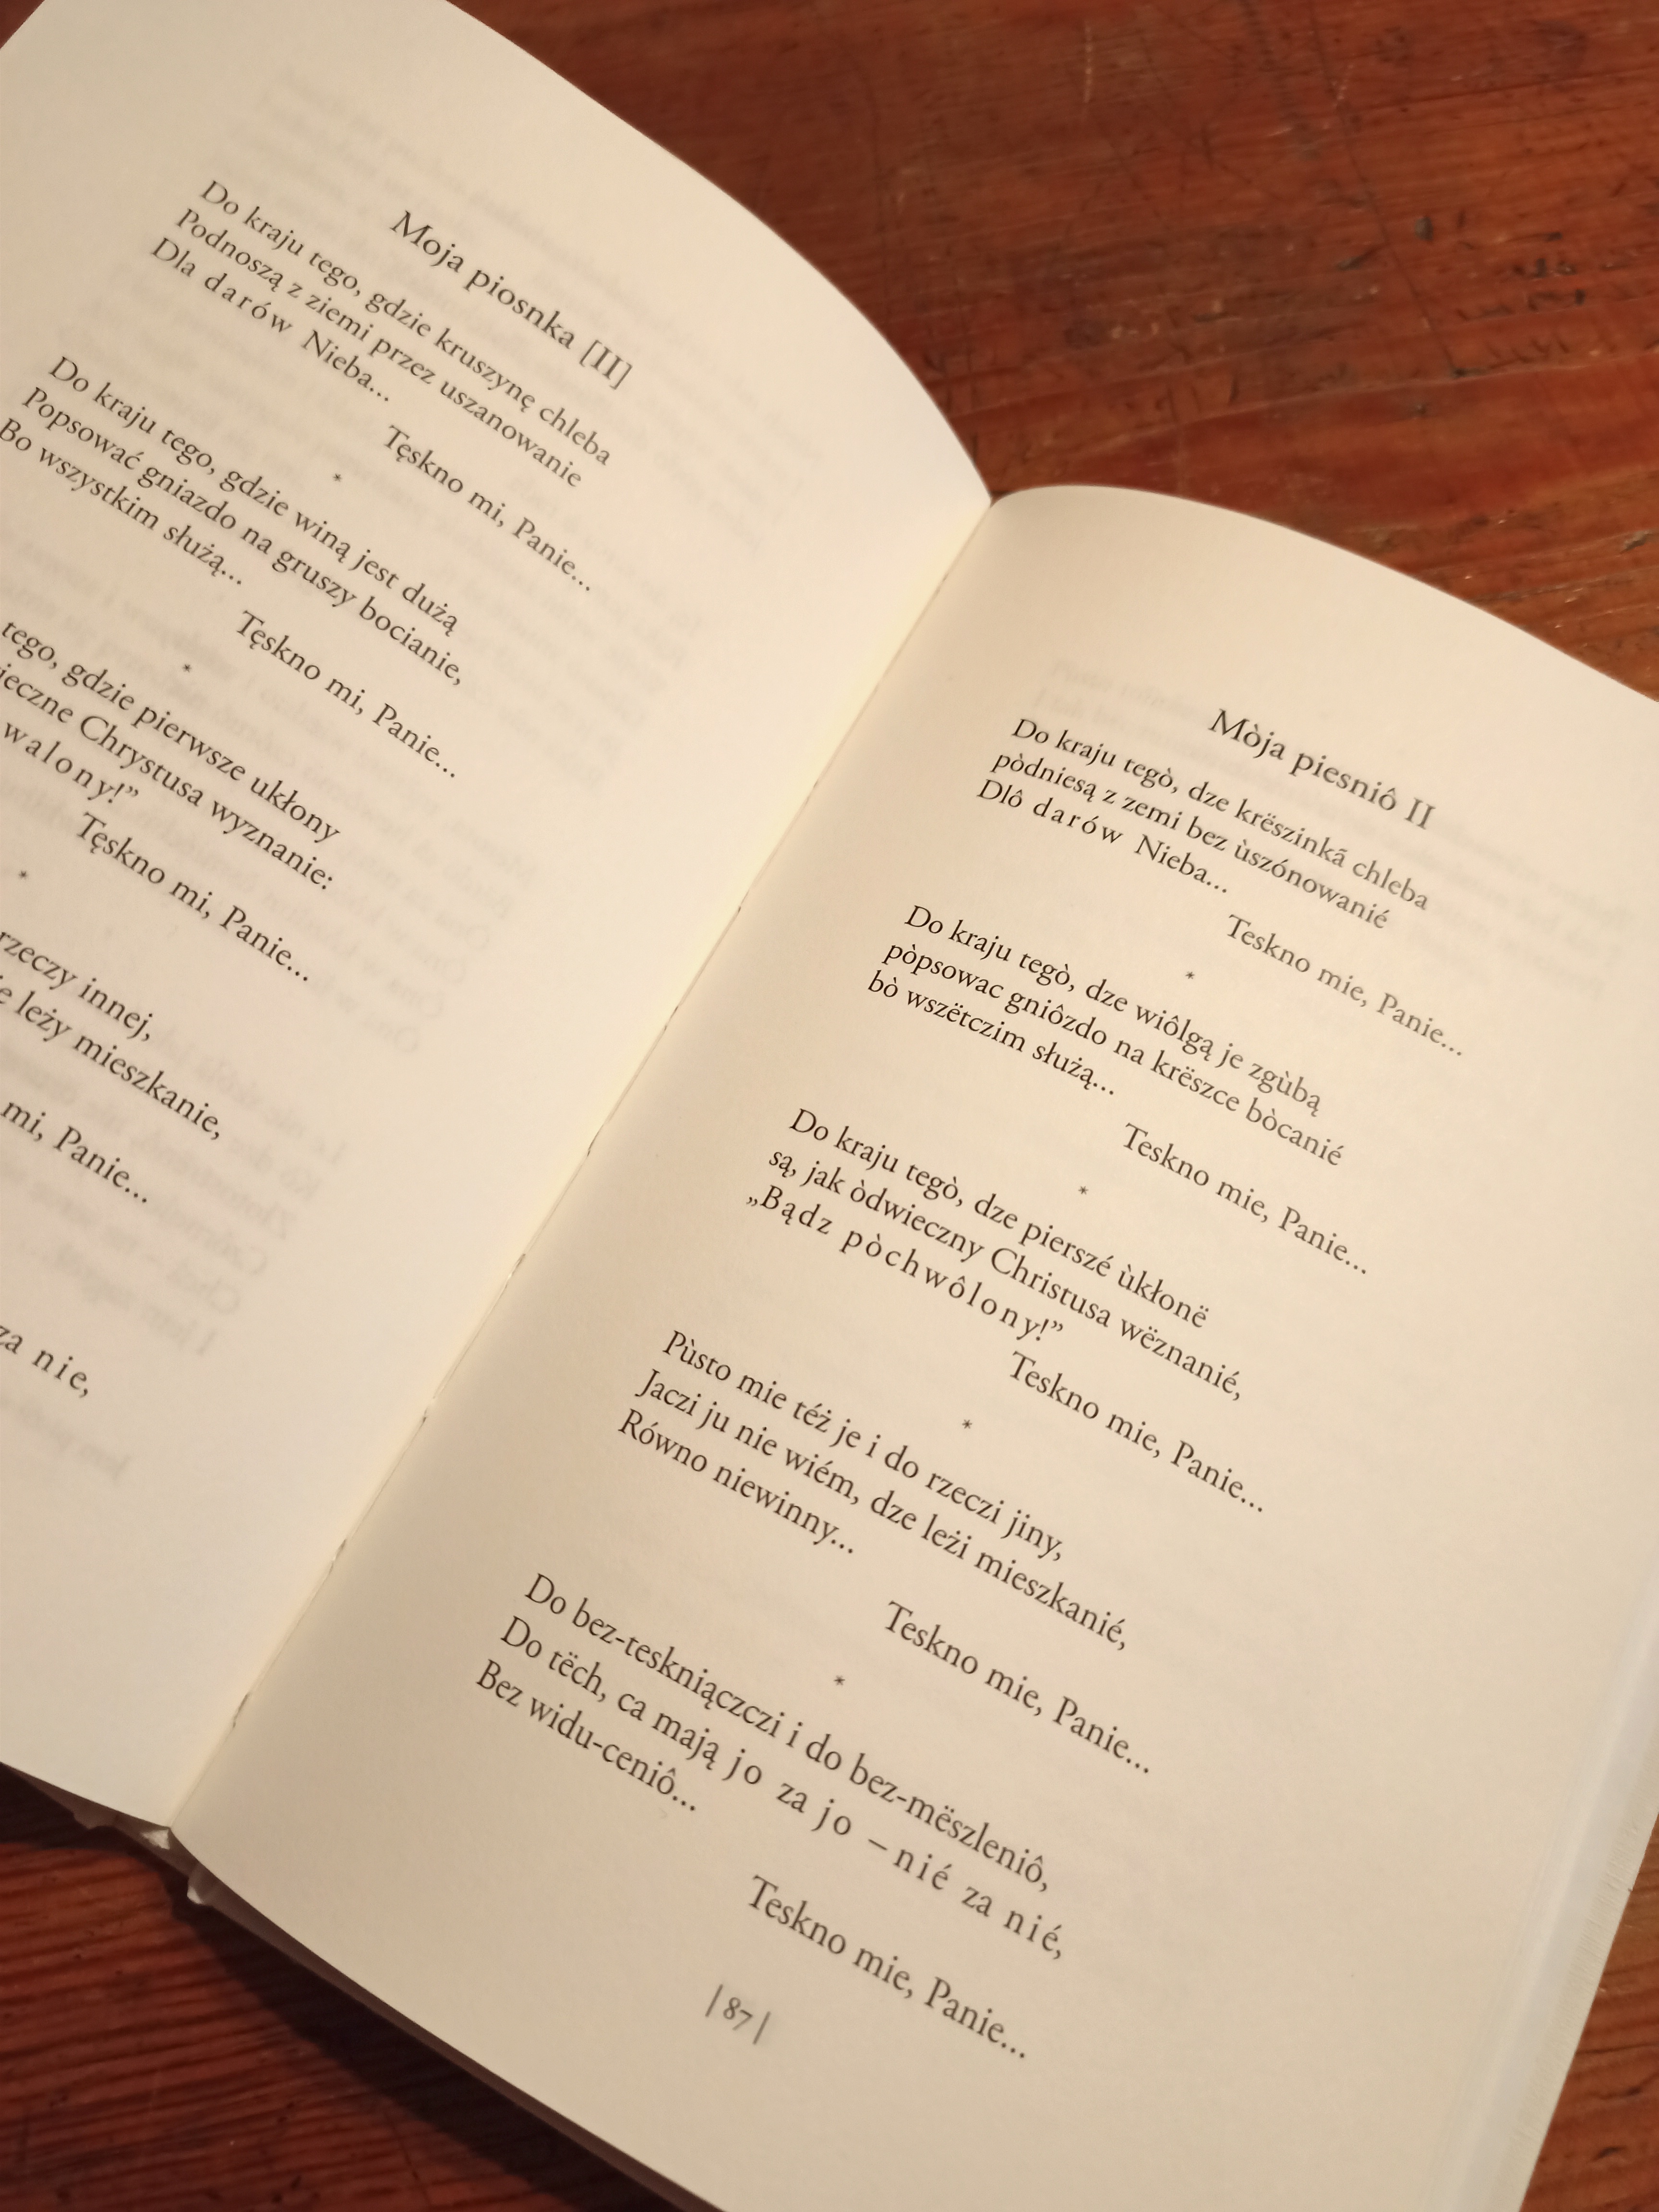 Moja piosnka [II]
Do kraju tego, gdzie kruszynę chleba
Podnoszą z ziemi przez uszanowanie
Dla darów Nieba...
Tęskno mi, Panie...
*
Do kraju tego, gdzie winą jest dużą
Popsować gniazdo na gruszy bocianie,
Bo wszystkim służą...
Tęskno mi, Panie...
*
tego, gdzie pierwsze ukłony
ieczne Chrystusa wyznanie:
walony!”
Tęskno mi, Panie...
*
rzeczy innej,
leży mieszkanie,
mi, Panie...
za nie,
Mòja piesniô II
Do kraju tegò, dze krëszinkã chleba
pòdniesą z zemi bez ùszónowanié
Dlô darów Nieba...
Teskno mie, Panie...
*
Do kraju tegò, dze wiôlgą je zgùbą
pòpsowac gniôzdo na krëszce bòcanié
bò wszëtczim służą...
Teskno mie, Panie...
*
Do kraju tegò, dze pierszé ùkłonë
są, jak òdwieczny Christusa wëznanié,
„Bądz pòchwôlony!”
Teskno mie, Panie...
*
Pùsto mie téż je i do rzeczi jiny,
Jaczi ju nie wiém, dze leżi mieszkanié,
Równo niewinny...
Teskno mie, Panie...
*
Do bez-teskniączczi i do bez-mëszleniô,
Do tëch, ca mają jo za jo – nié za nié,
Bez widu-ceniô...
Teskno mie, Panie...
| 87 |